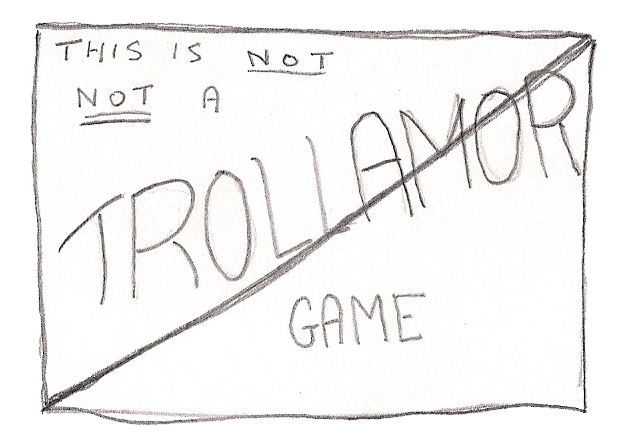 THIS IS NOT
NOT A
TROLLAMOR
GAME